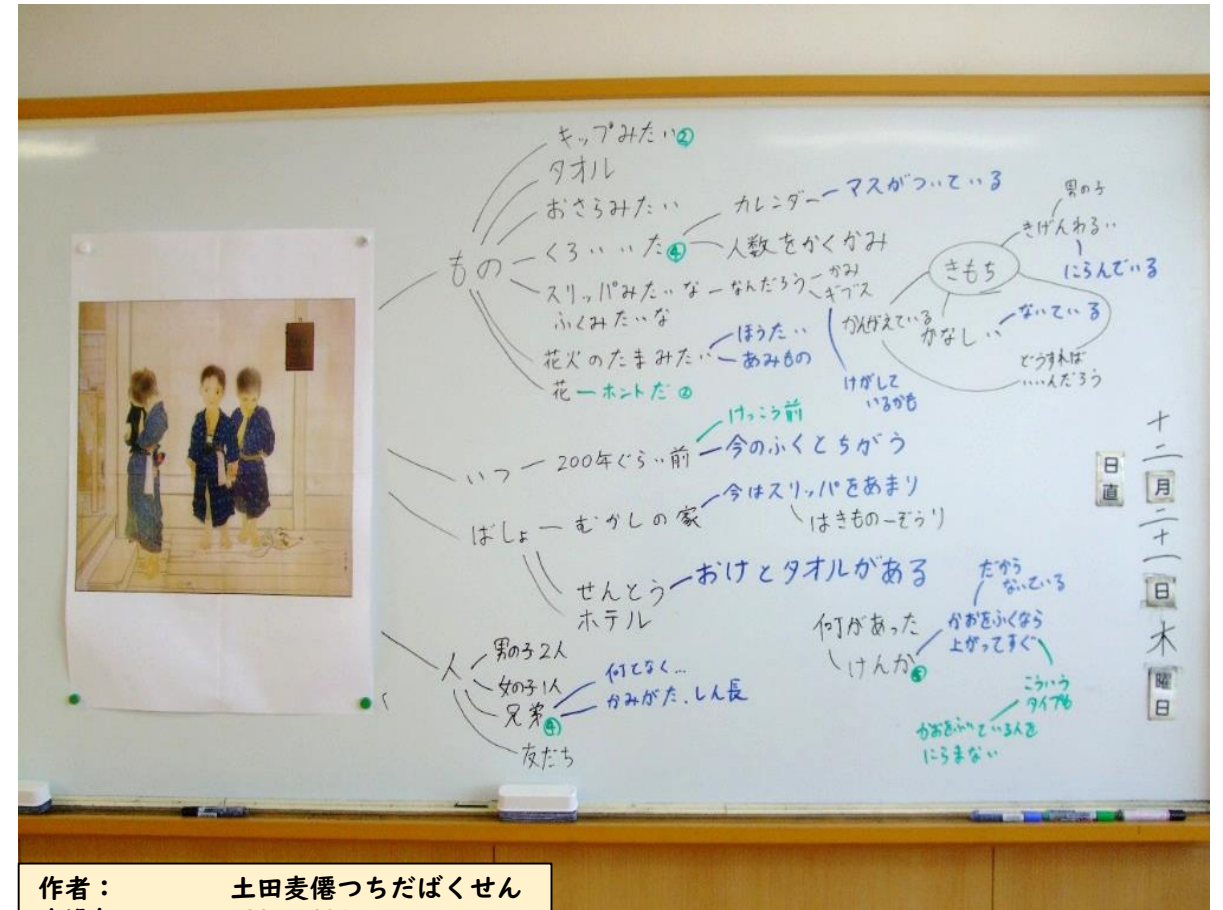 キップみたい②
タオル
おさらみたい
くろいいた④
カレンダー
マスがついている
人数をかくかみ
もの
スリッパみたいな
ふくみたいな
なんだろう
かみ
ギブス
けがして
いるかも
花火のたまみたい
ほうたい
あみもの
花
ホントだ②
きもち
男の子
きげんわるい
にらんでいる
かんがえている
かなしい
ないている
どうすれば
いいんだろう
いつ
200年ぐらい前
けっこう前
今のふくとちがう
ばしょ
むかしの家
今はスリッパをあまり
はきものーぞうり
せんとう
おけとタオルがある
ホテル
人
男の子2人
女の子1人
兄弟④
何てなく…
かみがた、しん長
友だち
何があった
けんか
かおをふくなら
上がってすぐ
だから
ないている
こういう
タイプも
かおをふいている人を
にらまない
十二月二十一日木曜日
日直
作者： 土田麦僊つちだばくせん